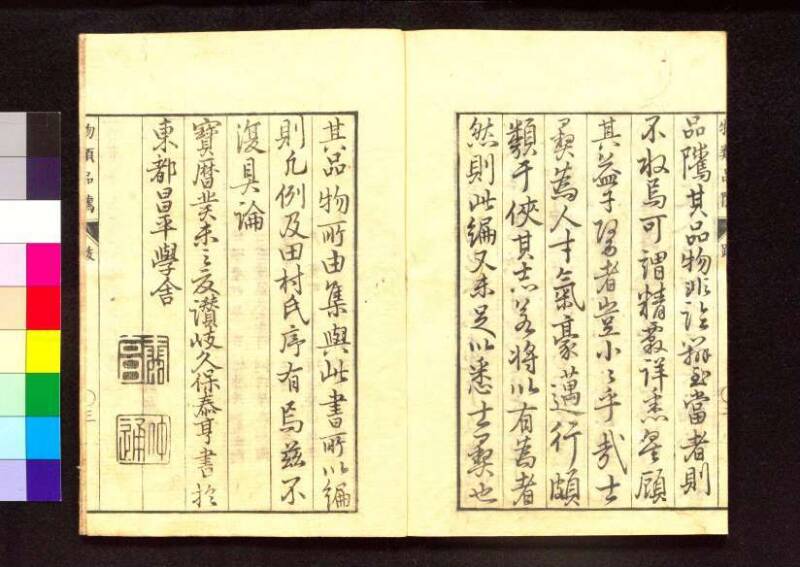 品隲其品物非詮辨至當者則
不收焉可謂精覈詳悉矣顧
其益于醫者豈小小乎哉士
彝為人才氣豪邁行頗
類于俠其志蓋將以有為者
然則此編又未足以悉士彝也
其品物所由集與此書所以編
則凡例及田村氏序有焉茲不
復具論
寶曆癸未之夏讃岐久保泰亨書於
東都昌平學舍
物類品隲
跋
三